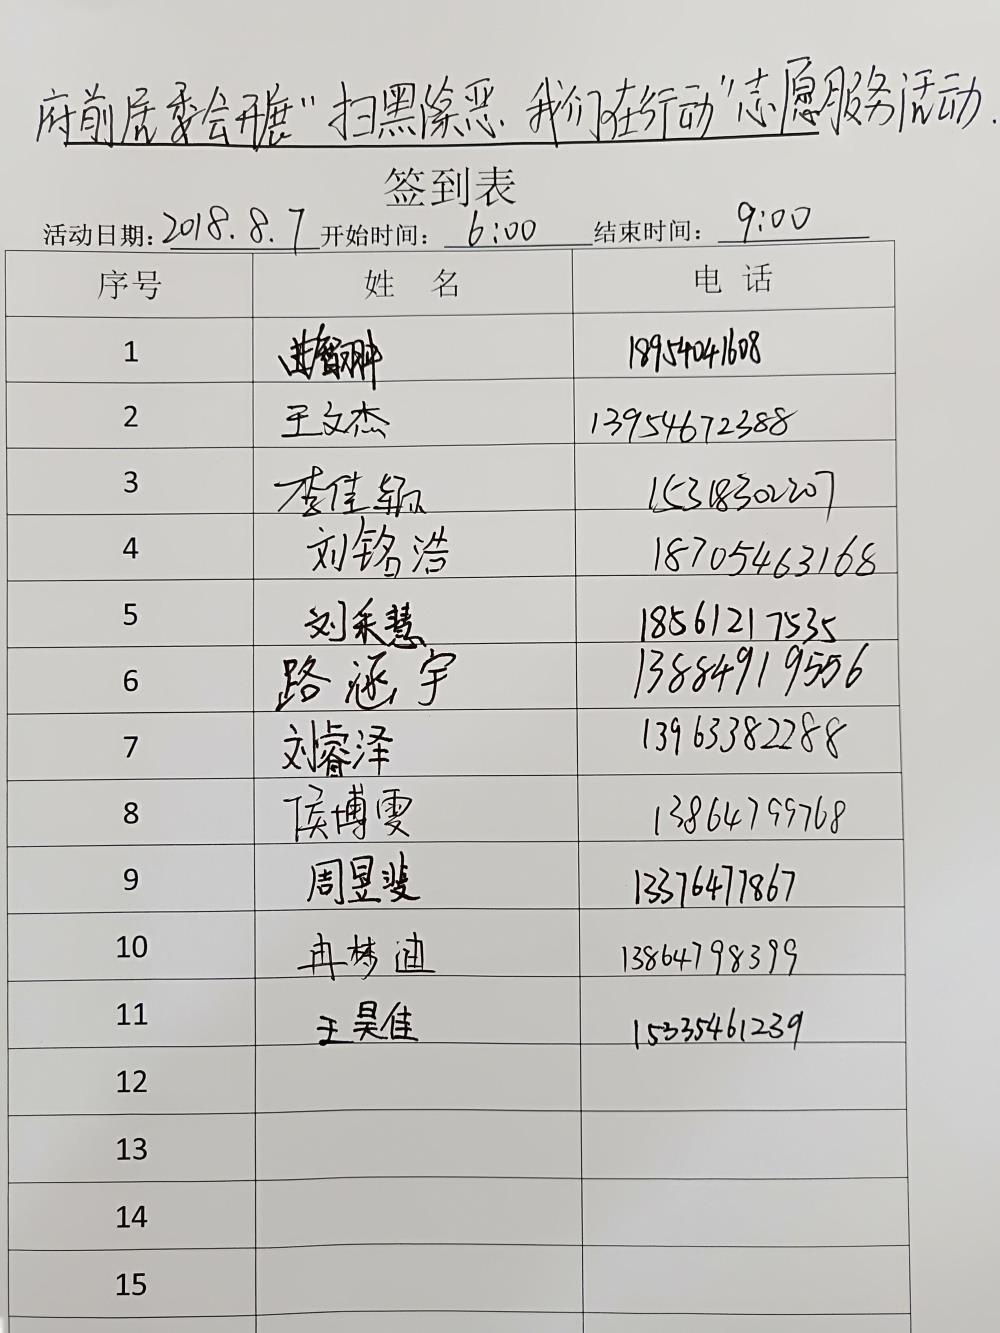 府前居委会开展“扫黑除恶.我们在行动”志愿服务活动.
签到表
活动日期：2018.8.7 开始时间： 6:00 结束时间： 9:00
序号 姓 名 电 话
1 18954041608
2 王文杰 13954672388
3 李佳颖 15318302207
4 刘铭浩 18705463168
5 刘采慧 18561217535
6 路涵宇 13884919556
7 刘睿泽 13963382288
8 侯博雯 13864799768
9 周昱斐 13376477867
10 冉梦迪 13864798399
11 王昊佳 15335461239
12
13
14
15